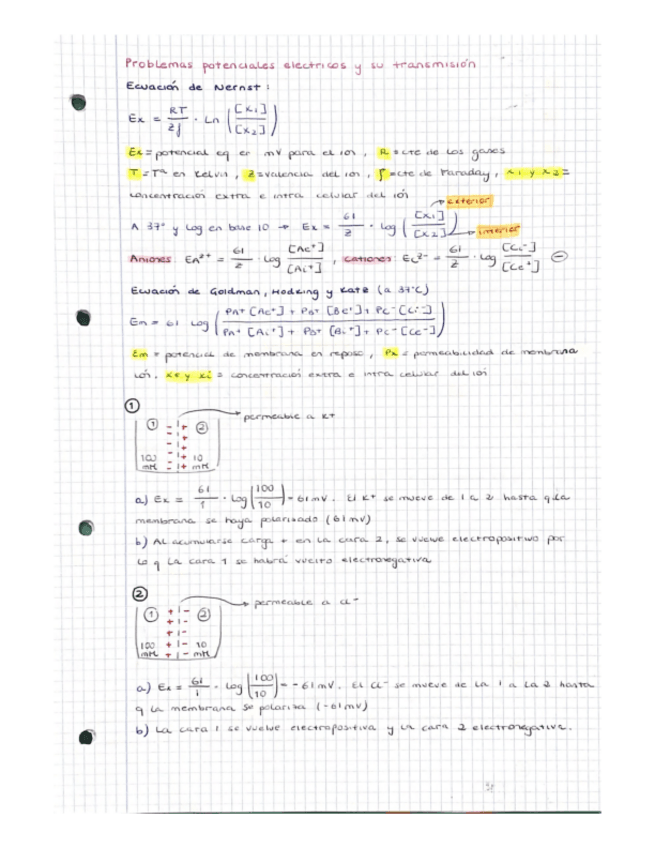 Problemas potenciales electricos y su transmisión
Ecuación de Nernst:
Ex = RT/zƒ · Ln ([X1]/[X2])
Ex = potencial eq en mV para el ion, R = cte de los gases
T = Tª en Kelvin, Z = valencia del ion, ƒ = cte de Faraday, x1 y x2 =
concentración extra e intra celular del ión
exterior
A 37° y Log en base 10 → Ex = 61/z · log ([X1]/[X2])
interior
Aniones: EA²⁺ = 61/z · Log [Ae⁺]/[Ai⁺] , cationes: EC²⁻ = 61/z · Log [Ci⁻]/[Ce⁺] ⊖
Ecuación de Goldman, Hodking y Katz (a 37°C)
Em = 61 Log (PA⁺ [Ae⁺] + PB⁺ [Be⁺] + PC⁻ [Ci⁻] / PA⁺ [Ai⁺] + PB⁺ [Bi⁺] + PC⁻ [Ce⁻])
Em = potencial de membrana en reposo, Px = permeabilidad de membrana
ión, xe y xi = concentración extra e intra celular del ión
①
permeable a K+
① - | + ②
- | +
- | +
- | +
100 - | + 10
mM - | + mM
a) Ex = 61/1 · Log (100/10) = 61mV. El K+ se mueve de 1 a 2 hasta q la
membrana se haya polarizado (61mV)
b) Al acumularse carga + en la cara 2, se vuelve electropositivo por
lo q la cara 1 se habrá vuelto electronegativa
②
permeable a Cl⁻
① + | - ②
+ | -
+ | -
100 + | - 10
mM + | - mM
a) Ex = 61/1 · Log (100/10) = -61mV. El Cl⁻ se mueve de la 1 a la 2 hasta
q la membrana se polariza (-61mV)
b) La cara 1 se vuelve electropositiva y la cara 2 electronegativa.